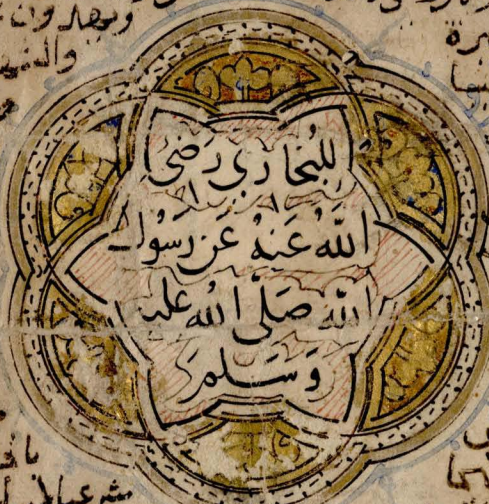 للبُخاري رَضيَ
اللهُ عَنهُ عَن رَسُول
الله صَلَّى الله عليه
وَسَلم